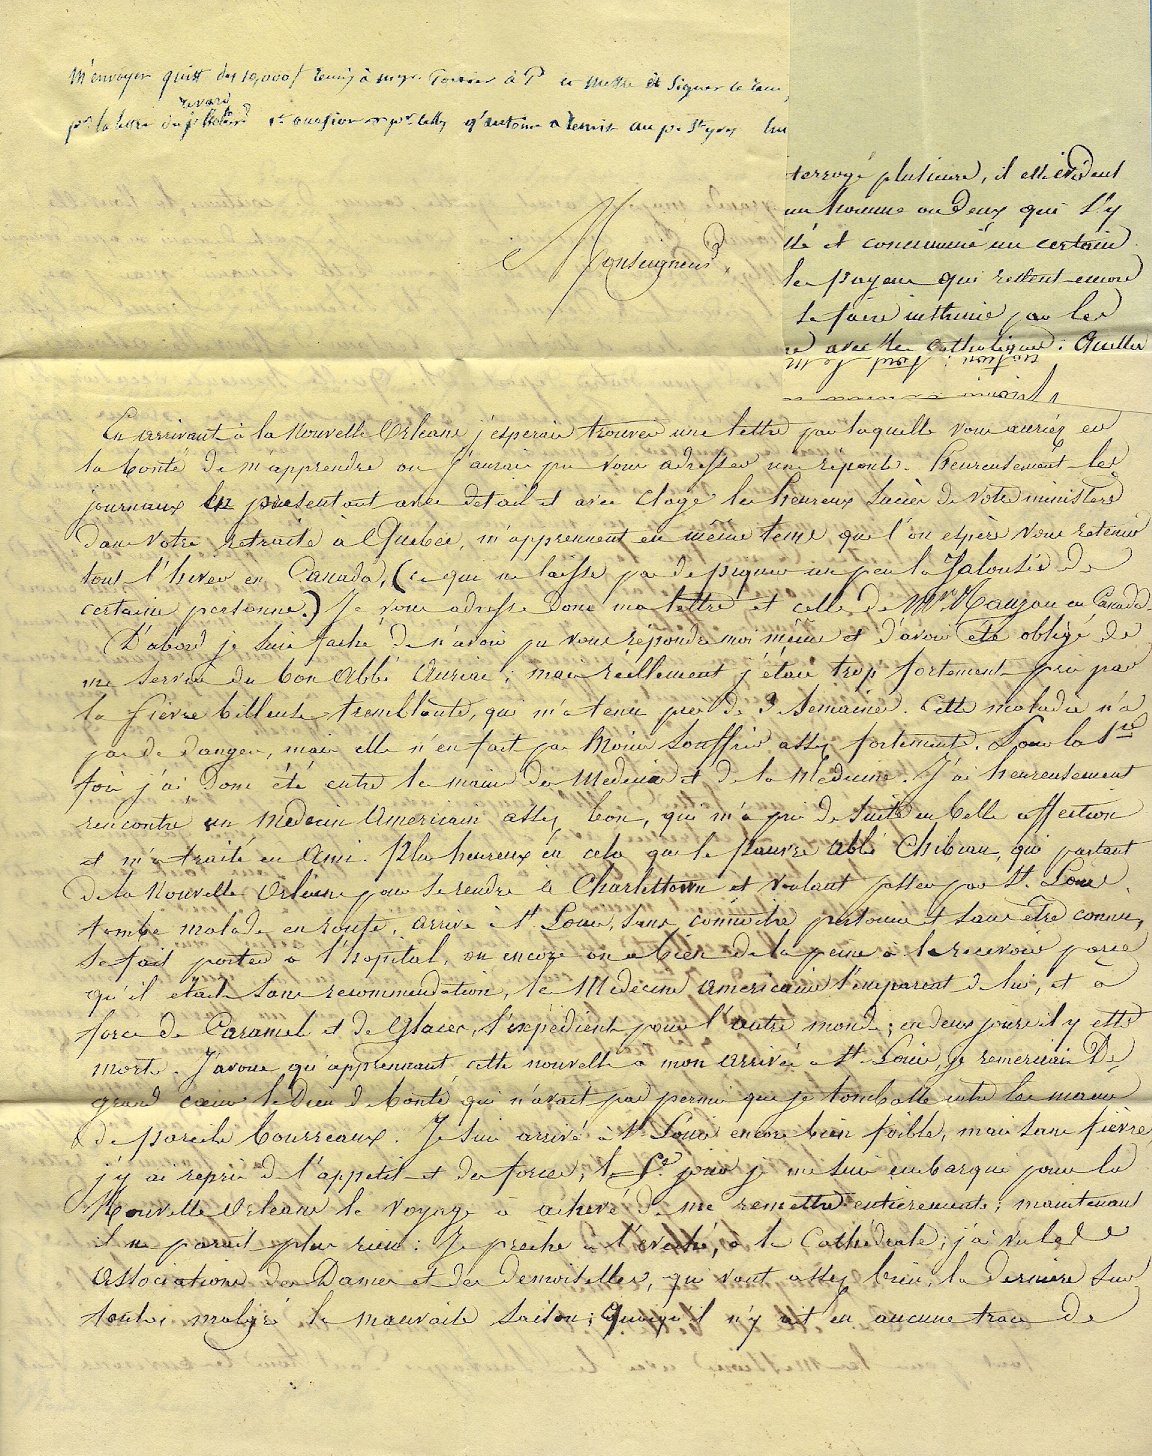 M'envoyer quitt des 10,000 f remis à
et signer le
pr la lettre du 1e occasion pr celle qu'antoine a remis au p. St yves
terrogé plusieurs, il est évident
un homme ou deux qui s'y
té et consommé un certain
les payens qui restent encore
se faire instruire par les
avec les Catholiques. Quelles
Monseigneur,
En arrivant à la Nouvelle Orleans j'esperais trouver une lettre par laquelle vous auriez eu
la bonté de m'apprendre ou j'aurais pu vous adresser une réponse. heureusement les
journaux en presentant avec detail et avec eloge les heureux succès de votre ministere
dans votre retraite à Quebec, m'apprennent en même tems que l'on espère vous retenir
tout l'hiver en Canada, (ce qui ne laisse pas de piquer un peu la Jalousie de
certaine personne.) Je vous adresse donc ma lettre et celle de Mr Mauzou en Canada.
D'abord je suis faché de n'avoir pu vous répondre moi même et d'avoir été obligé de
me servir du bon Abbé ; mais réellement j'étais trop fortement pris par
la fièvre billeuse tremblante, qui m'a tenu près de 3 semaines. Cette maladie n'a
pas de danger, mais elle n'en fait pas moins souffrir assez fortement. Pour la 1re
fois j'ai donc été entre les mains des Medecins et de la Médecine. J'ai heureusement
rencontré un Medecin Americain assez bon, qui m'a pris de suite en belle affection
et m'a traité en Ami. Plus heureux en cela que le pauvre Abbé Chibiau, qui partant
de la Nouvelle Orleans pour se rendre à Charlestown et voulant passer par St. Louis,
tombe malade en route, arrive à St Louis, sans connoitre personne et sans être connu,
se fait porter à l'hopital, ou encore on a bien de la peine à le recevoir parce
qu'il était sans recommendation, les Medecins Americains s'emparent de lui, et à
force de Caramel et de Glaces, l'expédient pour l'autre monde ; en deux jours il y est
mort. J'avoue qu'apprennant cette nouvelle à mon arrivée à St. Louis, je remerciai de
grand coeur le Dieu de bonté qui n'avait pas permis que je tombasse entre les mains
de pareils bourreaux. Je suis arrivé à St Louis encore bien foible, mais sans fièvre,
j'y ai repris de l'appetit et des forces ; le je me suis embarqué pour la
Nouvelle Orleans le voyage a achevé de me remettre entierement ; maintenant
il ne parait plus rien : Je prêche à l'évêché, à la Cathédrale ; j'ai vu les 2
Associations des Dames et des demoiselles, qui vont assez bien, la derniere sur
toutes malgré la mauvaise saison ; quoiqu'il n'y ait eu aucune trace de